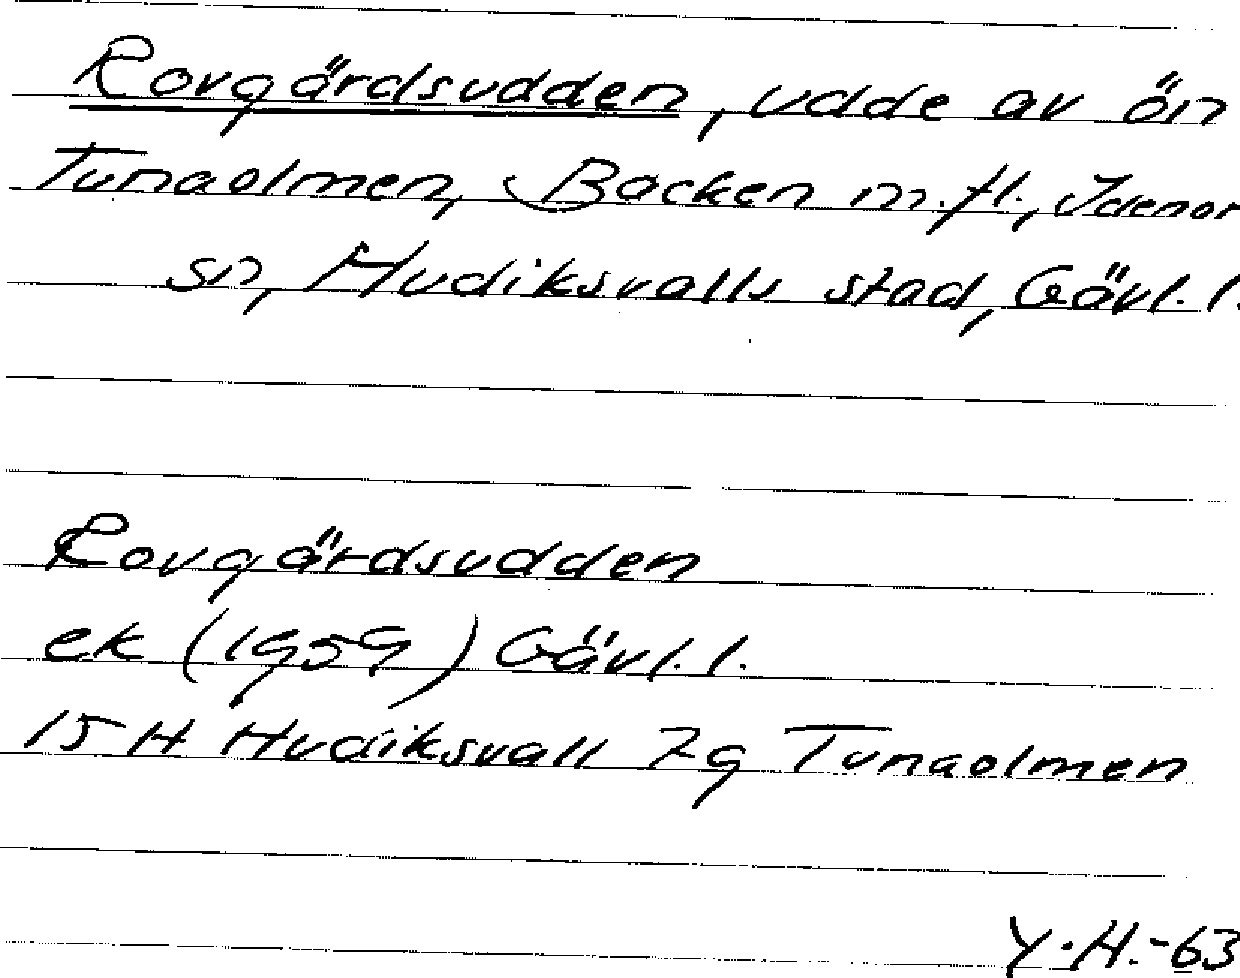 Rovgärdsudden, udde av ön
Tunaolmen, Backen m.fl., Idenor
sn, Hudiksvalls stad, Gävl. l.
Rovgärdsudden
ek (1959) Gävl. l.
15 H Hudiksvall 7g Tunaolmen
Y.H.-63